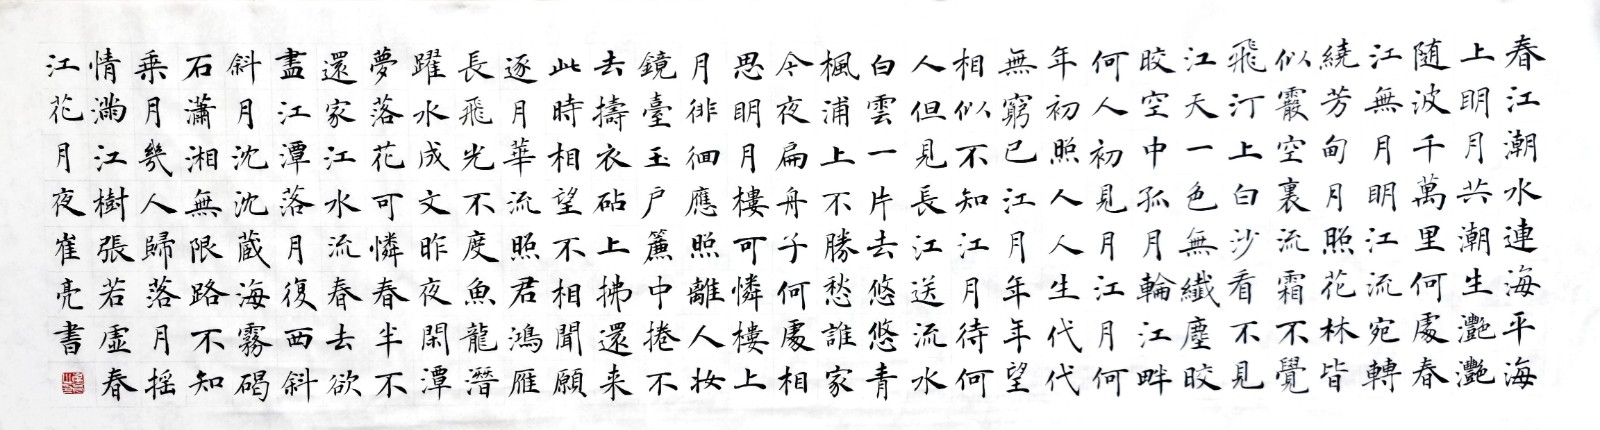 春江潮水連海平海
上明月共潮生灩灩
随波千萬里何處春
江無月明江流宛轉
繞芳甸月照花林皆
似霰空裏流霜不覺
飛汀上白沙看不見
江天一色無纖塵皎
皎空中孤月輪江畔
何人初見月江月何
年初照人人生代代
無窮已江月年年望
相似不知江月待何
人但見長江送流水
白雲一片去悠悠青
楓浦上不勝愁誰家
今夜扁舟子何處相
思明月樓可憐樓上
月徘徊應照離人妝
鏡臺玉戶簾中捲不
去擣衣砧上拂還来
此時相望不相聞願
逐月華流照君鴻雁
長飛光不度魚龍潛
躍水成文昨夜閑潭
夢落花可憐春半不
還家江水流春去欲
盡江潭落月復西斜
斜月沈沈蔵海霧碣
石瀟湘無限路不知
乗月幾人歸落月摇
情滿江樹張若虛春
江花月夜崔亮書